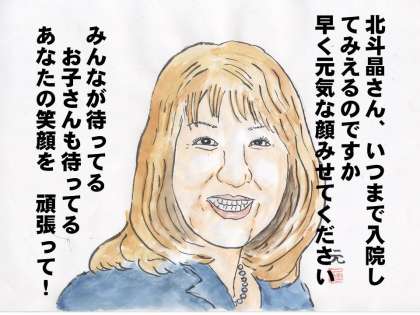 北斗晶さん、いつまで入院し
てみえるのですか
早く元気な顔みせてください
みんなが待ってる
お子さんも待ってる
あなたの笑顔を　頑張って！
元